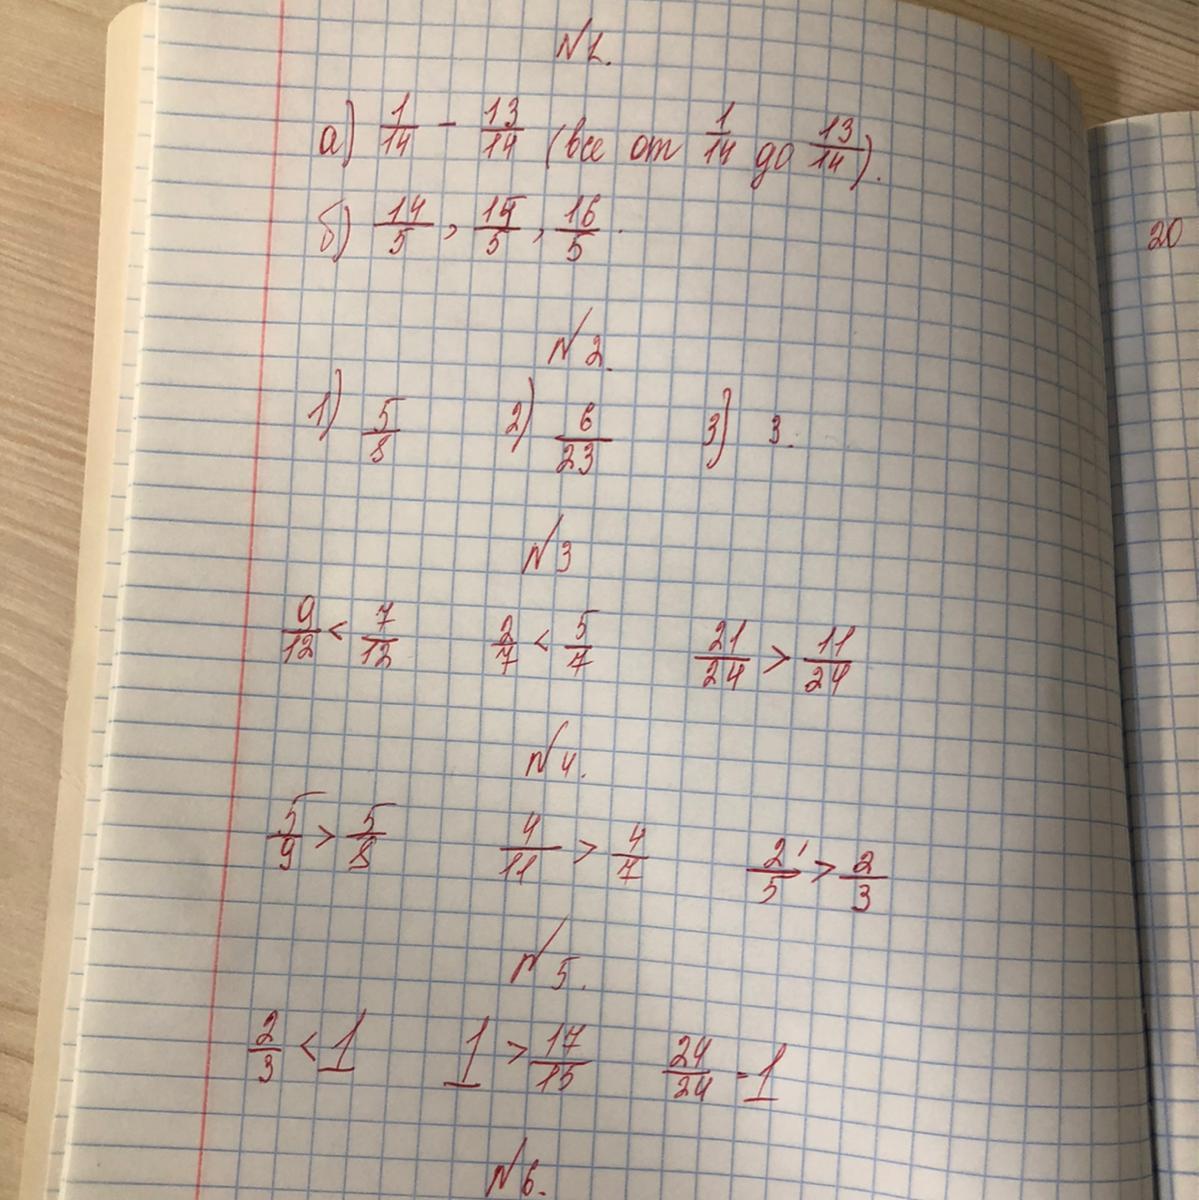 N1.
а) 1/14 - 13/14 (все от 1/14 до 13/14).
20
б) 14/5, 15/5, 16/5.
N2.
1) 5/8 2) 6/23 3) 3.
N3
9/12 < 7/12 2/7 < 5/7 21/24 > 11/24
N4.
5/9 > 5/8 4/11 > 4/7 2/5 > 2/3
N5.
2/3 < 1 1 > 17/15 24/24 = 1
N6.